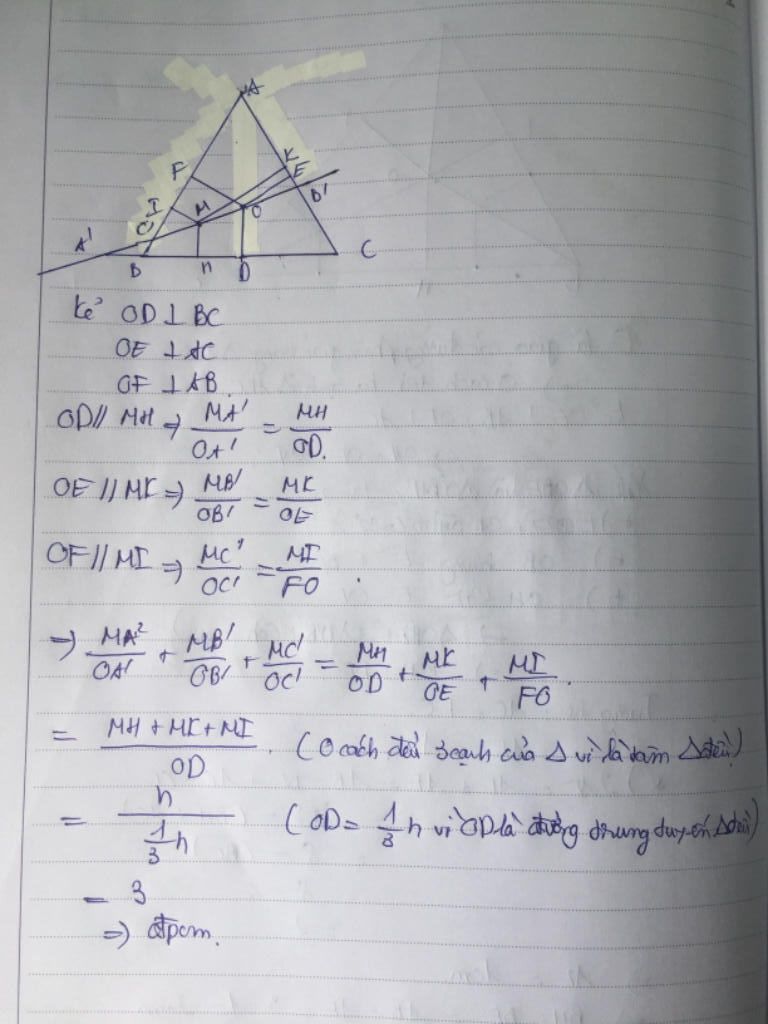 A
K
F
E
B'
I
M
O
C'
A'
B
H
D
C
Kẻ OD ⊥ BC
OE ⊥ AC
OF ⊥ AB.
OD // MH => MA'/OA' = MH/OD.
OE // MK => MB'/OB' = MK/OE
OF // MI => MC'/OC' = MI/FO.
=> MA²/OA' + MB'/OB' + MC'/OC' = MH/OD + MK/OE + MI/FO.
= (MH + MK + MI)/OD. (O cách đều 3 cạnh của Δ vì là tâm Δ đều)
= h/(1/3 h) (OD = 1/3 h vì OD là đường trung tuyến Δ đều)
= 3
=> đpcm.